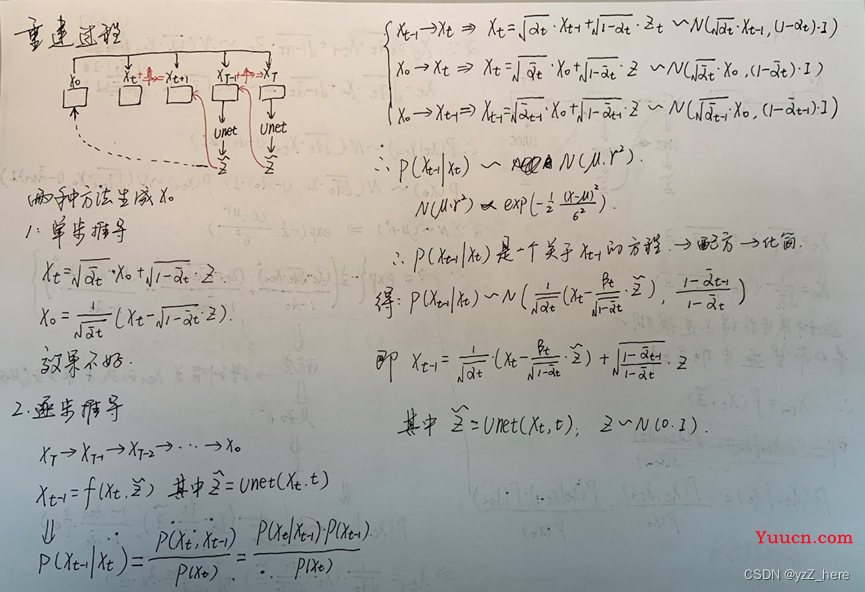 重建过程
x₀ x̂t x̂t+1 xT-1 xT
unet unet
z̃ z̃
两种方法生成 x₀
1: 单步推导
xt = √ᾱt · x₀ + √1-ᾱt · z
x₀ = 1/√ᾱt (xt - √1-ᾱt · z).
效果不好.
2. 逐步推导
xT → xT-1 → xT-2 → ··· → x₀
xt-1 = f(xt, z̃) 其中 z̃ = unet(xt, t)
⇓
P(xt-1|xt) = P(xt, xt-1)/P(xt) = P(xt|xt-1)·P(xt-1)/P(xt)
xt-1 → xt ⇒ xt = √αt · xt-1 + √1-αt · zt ~ N(√αt · xt-1, (1-αt)·I)
x₀ → xt ⇒ xt = √ᾱt · x₀ + √1-ᾱt · z ~ N(√ᾱt · x₀, (1-ᾱt)·I)
x₀ → xt-1 ⇒ xt-1 = √ᾱt-1 · x₀ + √1-ᾱt-1 · z ~ N(√ᾱt-1 · x₀, (1-ᾱt-1)·I)
∴ P(xt-1|xt) ~ N(μ, r²).
N(μ, r²) ∝ exp(-1/2 (x-μ)²/6²).
∴ P(xt-1|xt) 是一个关于 xt-1 的方程. → 配方 → 化简.
得: P(xt-1|xt) ~ N(1/√αt (xt - βt/√1-ᾱt · z̃), 1-ᾱt-1/1-ᾱt)
即 xt-1 = 1/√αt · (xt - βt/√1-ᾱt · z̃) + √(1-ᾱt-1/1-ᾱt) · z
其中 z̃ = Unet(xt, t); z ~ N(0, I).
Yuucn.com
CSDN @yzZ_here